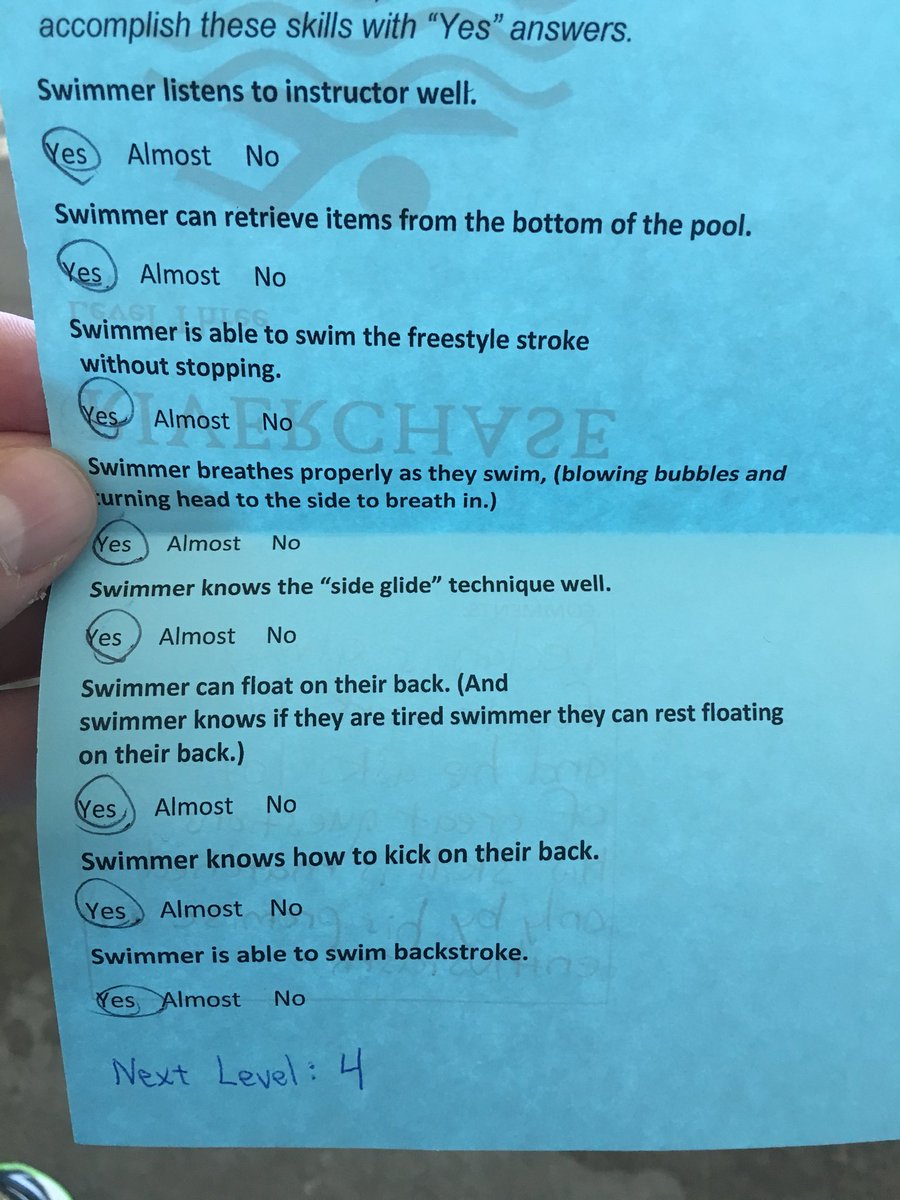 accomplish these skills with “Yes” answers.
Swimmer listens to instructor well.
Yes Almost No
Swimmer can retrieve items from the bottom of the pool.
Yes Almost No
Swimmer is able to swim the freestyle stroke
without stopping.
Yes Almost No
RIVERCHASE
Swimmer breathes properly as they swim, (blowing bubbles and
turning head to the side to breath in.)
Yes Almost No
Swimmer knows the “side glide” technique well.
Yes Almost No
Swimmer can float on their back. (And
swimmer knows if they are tired swimmer they can rest floating
on their back.)
Yes Almost No
Swimmer knows how to kick on their back.
Yes Almost No
Swimmer is able to swim backstroke.
Yes Almost No
Next Level: 4